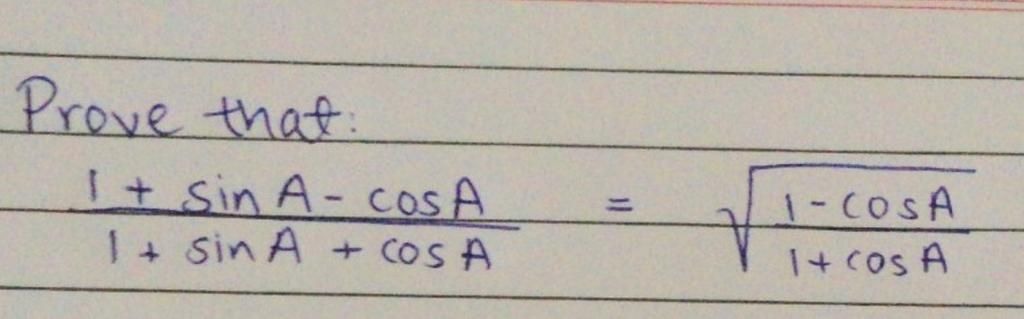 Prove that:
1 + sin A - cos A / 1 + sin A + cos A = √(1 - cos A / 1 + cos A)